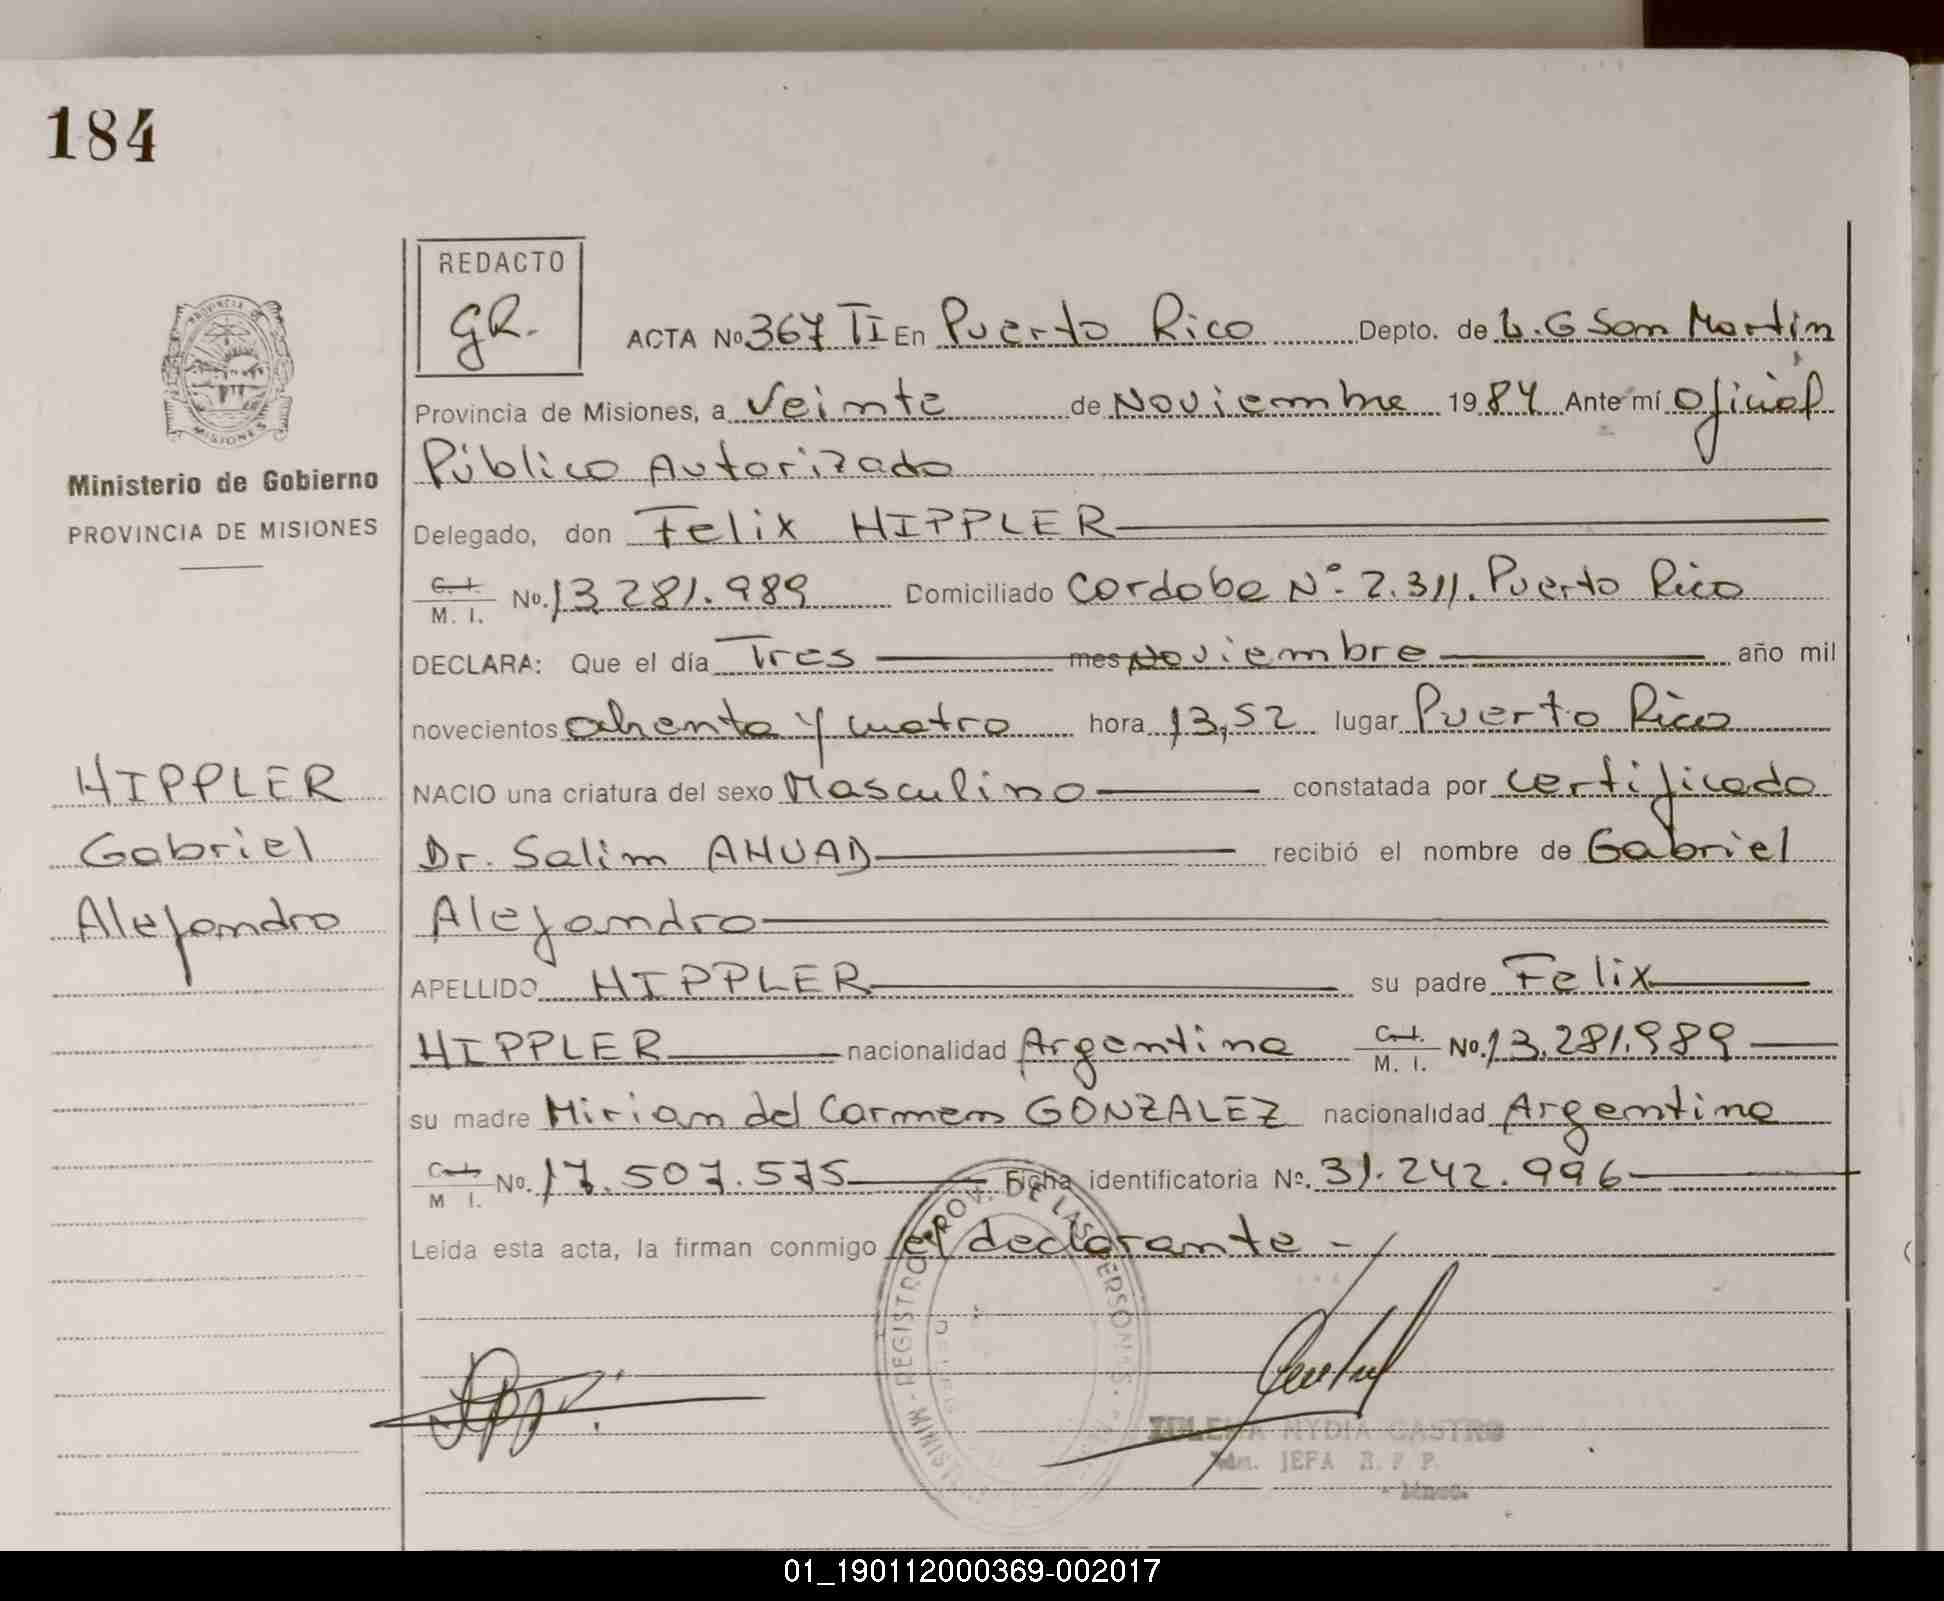 184
REDACTO
GR.
ACTA No 367 TI En Puerto Rico Depto. de L.G San Martin
Provincia de Misiones, a Veinte de Noviembre 1984 Ante mí Oficial
Público Autorizado
Ministerio de Gobierno
PROVINCIA DE MISIONES
Delegado, don Felix HIPPLER
C.I. M. I. No. 13.281.989 Domiciliado Cordoba Nº 2.311. Puerto Rico
DECLARA: Que el día Tres mes Noviembre año mil
novecientos ochenta y cuatro hora 13,52 lugar Puerto Rico
HIPPLER
Gabriel
Alejandro
NACIO una criatura del sexo Masculino constatada por certificado
Dr. Salim AHUAD recibió el nombre de Gabriel
Alejandro
APELLIDO HIPPLER su padre Felix
HIPPLER nacionalidad Argentina C.I. M. I. No. 13.281.989
su madre Mirian del Carmen GONZALEZ nacionalidad Argentina
C.I. M I. No. 17.507.575 Ficha identificatoria Nº. 31.242.996
Leida esta acta, la firman conmigo el declarante -
REGISTRO PROV. DE LAS PERSONAS
NYDIA CASTRO
JEFA R. P P.
01_190112000369-002017